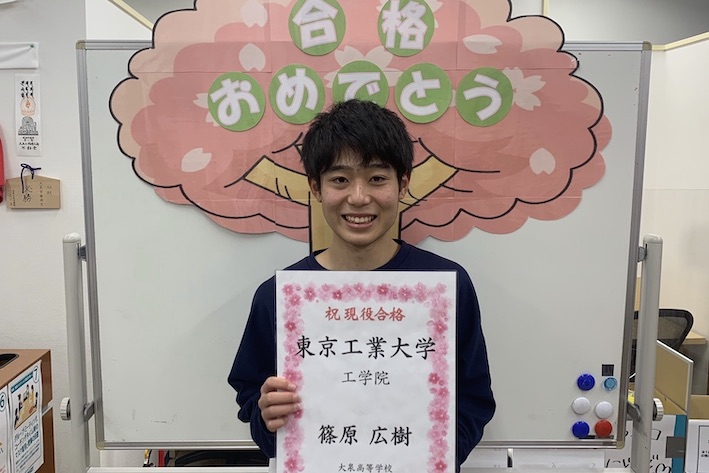 合格
おめでとう
祝 現役合格
東京工業大学
工学院
篠原 広樹
大泉高等学校